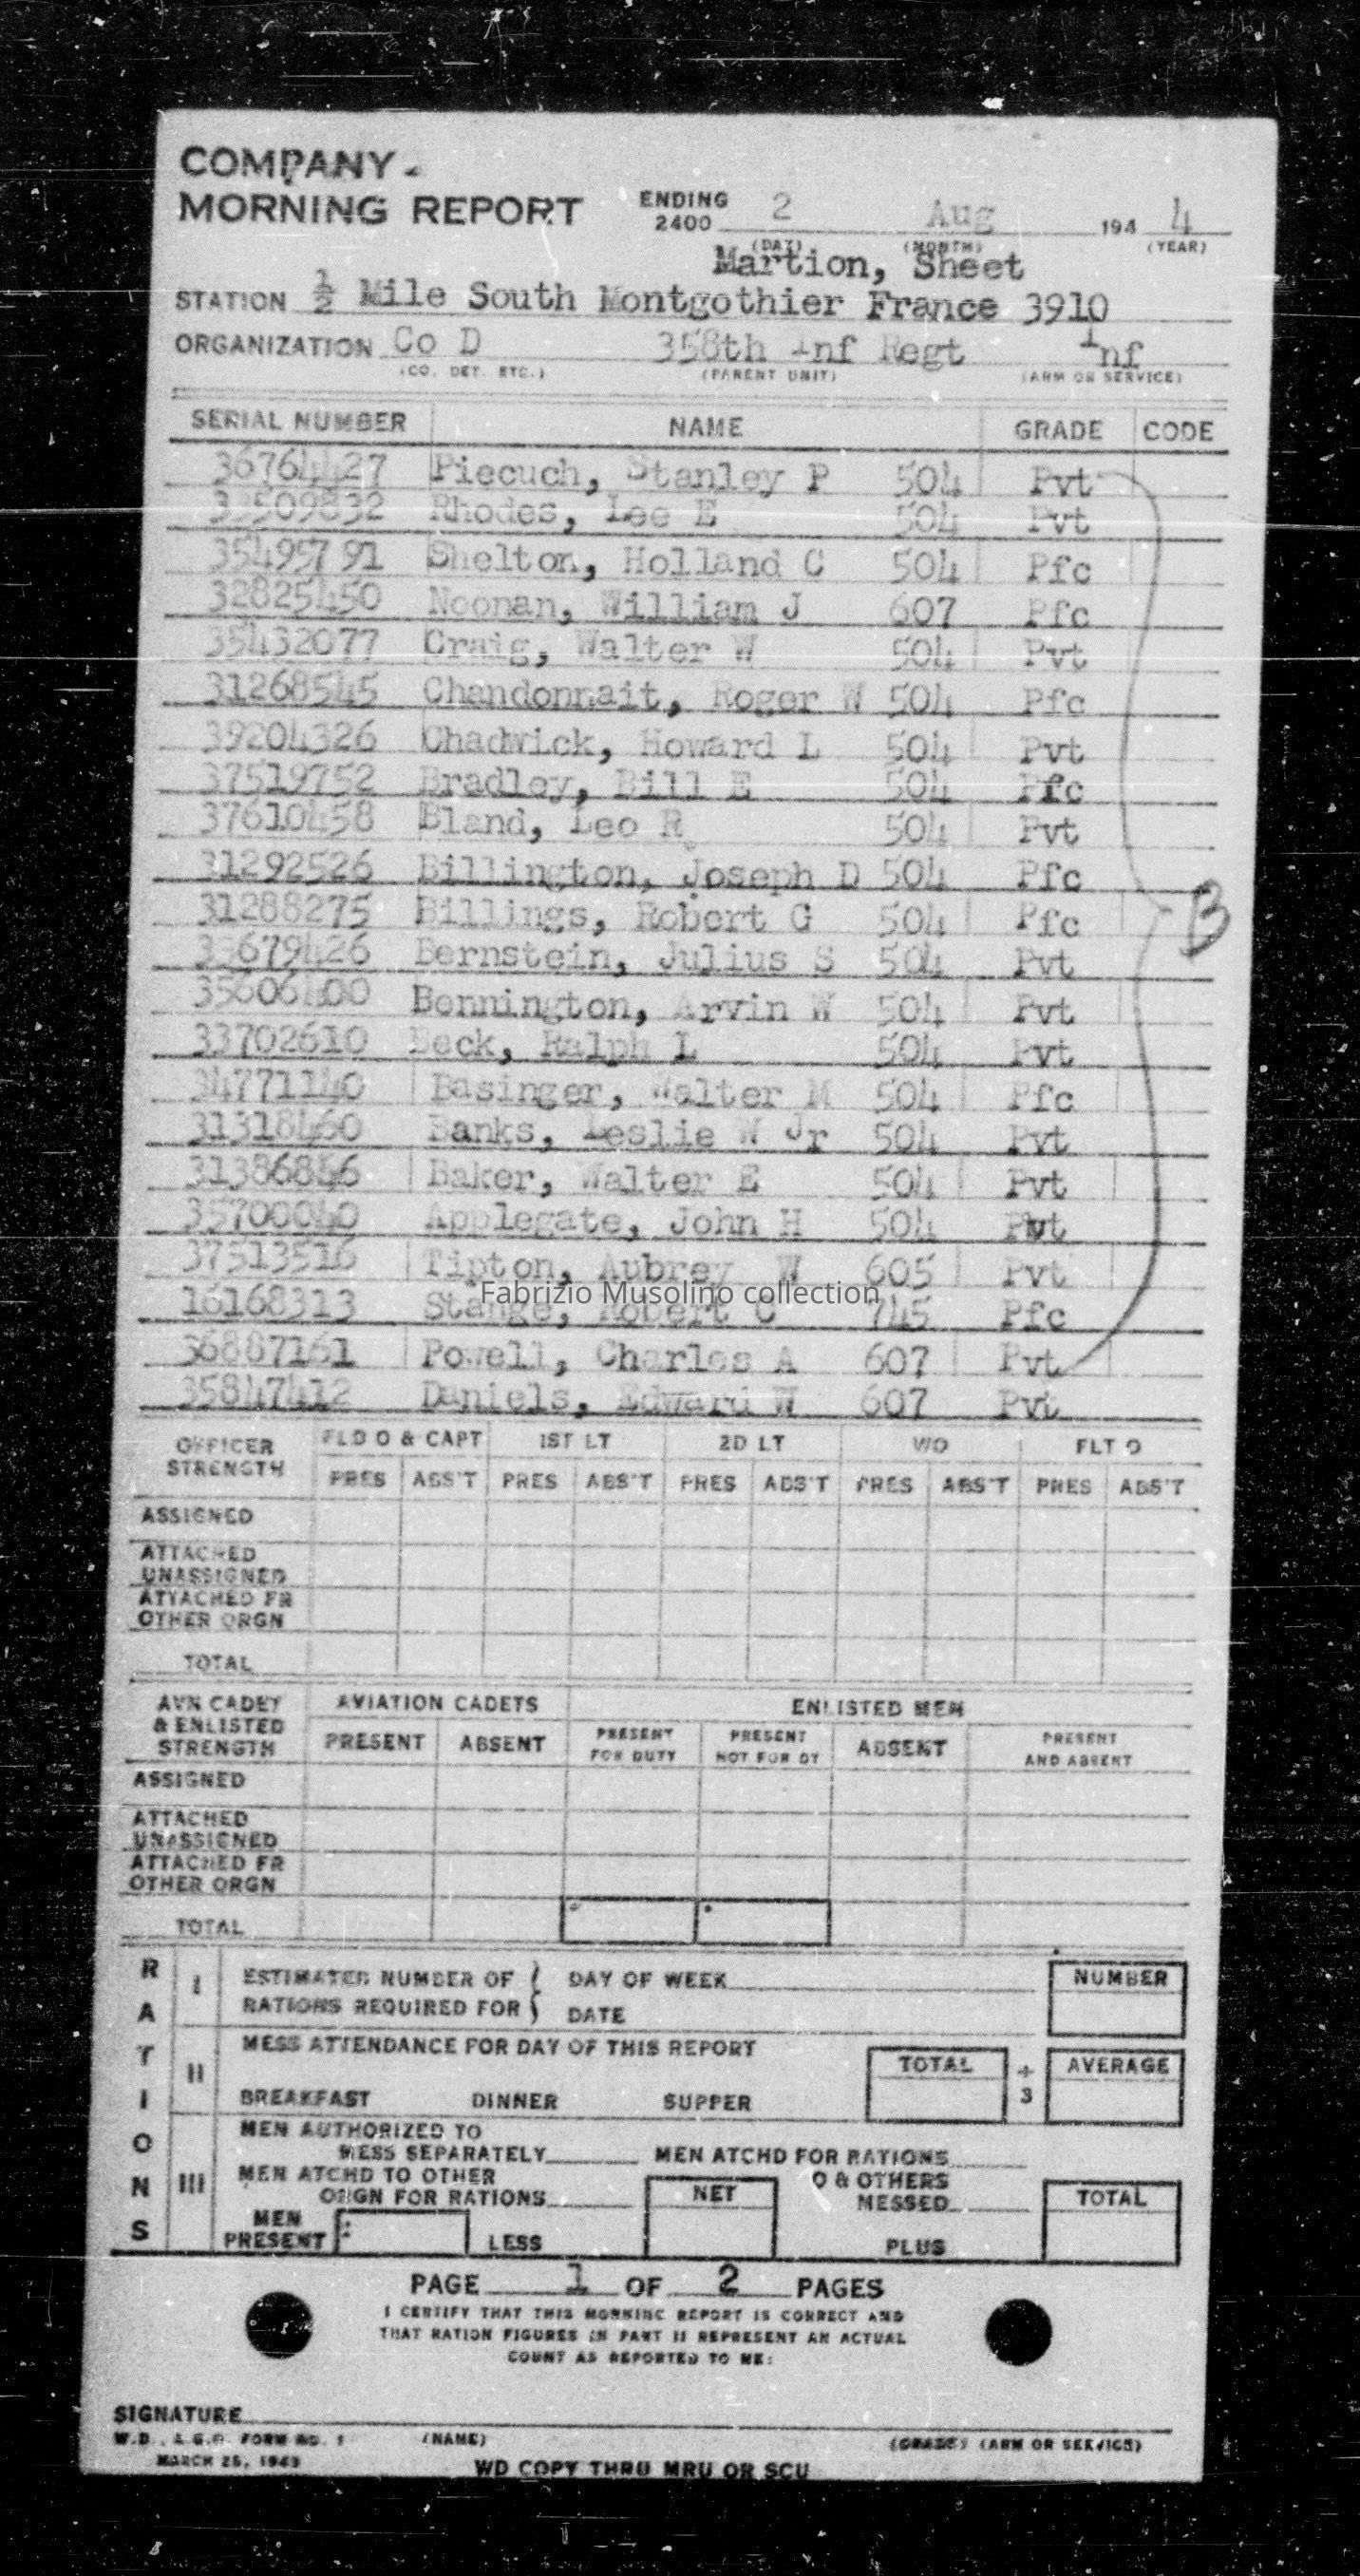 COMPANY
MORNING REPORT ENDING 2400 2 Aug 194 4
(DAY) (MONTH) (YEAR)
Martion, Sheet
STATION ½ Mile South Montgothier France 3910
ORGANIZATION Co D 358th Inf Regt Inf
(CO. DET. ETC.) (PARENT UNIT) (ARM OR SERVICE)
SERIAL NUMBER NAME GRADE CODE
36764427 Piecuch, Stanley P 504 Pvt
509832 Rhodes, Lee E 504 Pvt
35495791 Shelton, Holland C 504 Pfc
32825450 Noonan, William J 607 Pfc
35432077 Craig, Walter W 504 Pvt
31268545 Chandonnait, Roger W 504 Pfc
39204326 Chadwick, Howard L 504 Pvt
37519752 Bradley, Bill E 504 Pfc
37610458 Bland, Leo R 504 Pvt
31292526 Billington, Joseph D 504 Pfc
31288275 Billings, Robert G 504 Pfc
B
679426 Bernstein, Julius S 504 Pvt
35606400 Bennington, Arvin W 504 Pvt
33702610 Beck, Ralph L 504 Pvt
34771140 Basinger, Walter M 504 Pfc
31318460 Banks, Leslie W Jr 504 Pvt
31386856 Baker, Walter E 504 Pvt
Applegate, John H 504 Pvt
37513516 Tipton, Aubrey W 605 Pvt
Fabrizio Musolino collection
16168313 Stange, Robert C 745 Pfc
36887161 Powell, Charles A 607 Pvt
35847412 Daniels, Edward W 607 Pvt
OFFICER STRENGTH FLD O & CAPT 1ST LT 2D LT WO FLT O
PRES ABS'T PRES ABS'T PRES ABS'T PRES ABS'T PRES ABS'T
ASSIGNED
ATTACHED
UNASSIGNED
ATTACHED FR
OTHER ORGN
TOTAL
AVN CADET & ENLISTED STRENGTH AVIATION CADETS ENLISTED MEN
PRESENT ABSENT PRESENT FOR DUTY PRESENT NOT FOR DY ABSENT PRESENT AND ABSENT
ASSIGNED
ATTACHED
UNASSIGNED
ATTACHED FR
OTHER ORGN
TOTAL
RATIONS
I ESTIMATED NUMBER OF DAY OF WEEK NUMBER
RATIONS REQUIRED FOR DATE
II MESS ATTENDANCE FOR DAY OF THIS REPORT TOTAL ÷ 3 AVERAGE
BREAKFAST DINNER SUPPER
III MEN AUTHORIZED TO
MESS SEPARATELY MEN ATCHD FOR RATIONS
MEN ATCHD TO OTHER O & OTHERS
ORGN FOR RATIONS NET MESSED TOTAL
MEN
PRESENT LESS PLUS
PAGE 1 OF 2 PAGES
I CERTIFY THAT THIS MORNING REPORT IS CORRECT AND
THAT RATION FIGURES IN PART II REPRESENT AN ACTUAL
COUNT AS REPORTED TO ME:
SIGNATURE
W.D., A.G.O. FORM NO. 1 (NAME) (GRADE) (ARM OR SERVICE)
MARCH 25, 1943
WD COPY THRU MRU OR SCU